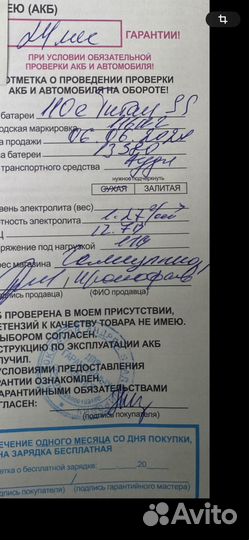 ЕЮ (АКБ)
24 мес
ГАРАНТИИ!
ПРИ УСЛОВИИ ОБЯЗАТЕЛЬНОЙ
ПРОВЕРКИ АКБ И АВТОМОБИЛЯ!
ОТМЕТКА О ПРОВЕДЕНИИ ПРОВЕРКИ
АКБ И АВТОМОБИЛЯ НА ОБОРОТЕ!
батареи 110е Титан
одская маркировка
а продажи
а батареи
транспортного средства
нужное подчеркнуть
СУХАЯ ЗАЛИТАЯ
вень электролита
отность электролита 1.27
12.70
ряжение под нагрузкой
рес магазина
(подпись продавца) (ФИО продавца)
Б ПРОВЕРЕНА В МОЕМ ПРИСУТСТВИИ,
ЕТЕНЗИЙ К КАЧЕСТВУ ТОВАРА НЕ ИМЕЮ.
ЫБОРОМ СОГЛАСЕН.
СТРУКЦИЮ ПО ЭКСПЛУАТАЦИИ АКБ
ЛУЧИЛ.
УСЛОВИЯМИ ПРЕДОСТАВЛЕНИЯ
РАНТИИ ОЗНАКОМЛЕН.
АРАНТИЙНЫМИ ОБЯЗАТЕЛЬСТВАМИ
ГЛАСЕН:
(подпись покупателя)
ЕЧЕНИЕ ОДНОГО МЕСЯЦА СО ДНЯ ПОКУПКИ,
НА ЗАРЯДКА БЕСПЛАТНАЯ
етка о бесплатной зарядке: 20
дпись покупателя) (подпись гарантийного мастера)
Avito